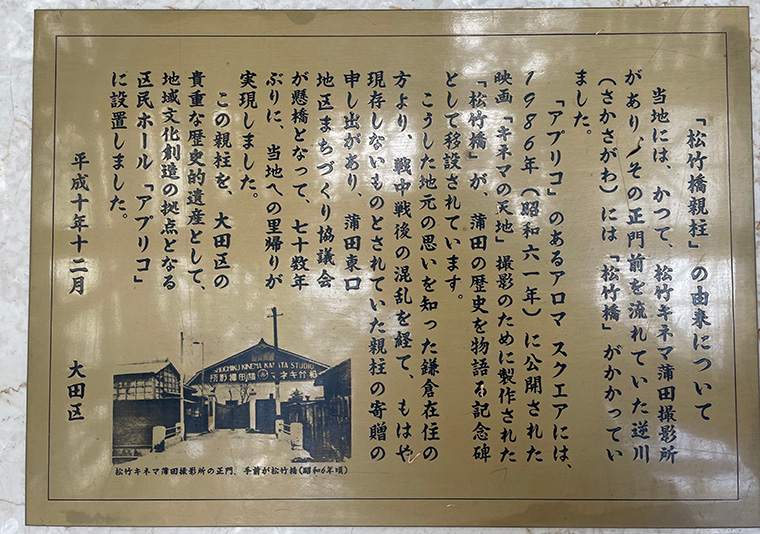 「松竹橋親柱」の由来について
当地には、かつて、松竹キネマ蒲田撮影所
があり、その正門前を流れていた逆川
（さかさがわ）には「松竹橋」がかかってい
ました。
「アプリコ」のあるアロマ スクエアには、
1986年（昭和六一年）に公開された
映画「キネマの天地」撮影のために製作された
「松竹橋」が、蒲田の歴史を物語る記念碑
として移設されています。
こうした地元の思いを知った鎌倉在住の
方より、戦中戦後の混乱を経て、もはや
現存しないものとされていた親柱の寄贈の
申し出があり、蒲田東口
地区まちづくり協議会
が懸橋となって、七十数年
ぶりに、当地への里帰りが
実現しました。
この親柱を、大田区の
貴重な歴史的遺産として、
地域文化創造の拠点となる
区民ホール「アプリコ」
に設置しました。
平成十年十二月 大田区
SHOCHIKU KINEMA KAMATA STUDIO
松竹キネマ蒲田撮影所
松竹キネマ蒲田撮影所の正門、手前が松竹橋(昭和6年頃)